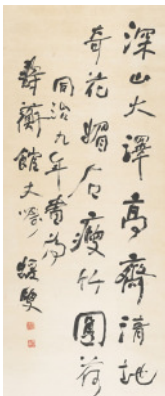 深山大澤高齋清地
奇花媚石瘦竹圓荷
同治九年書為
壽蘅館大人
媛叟